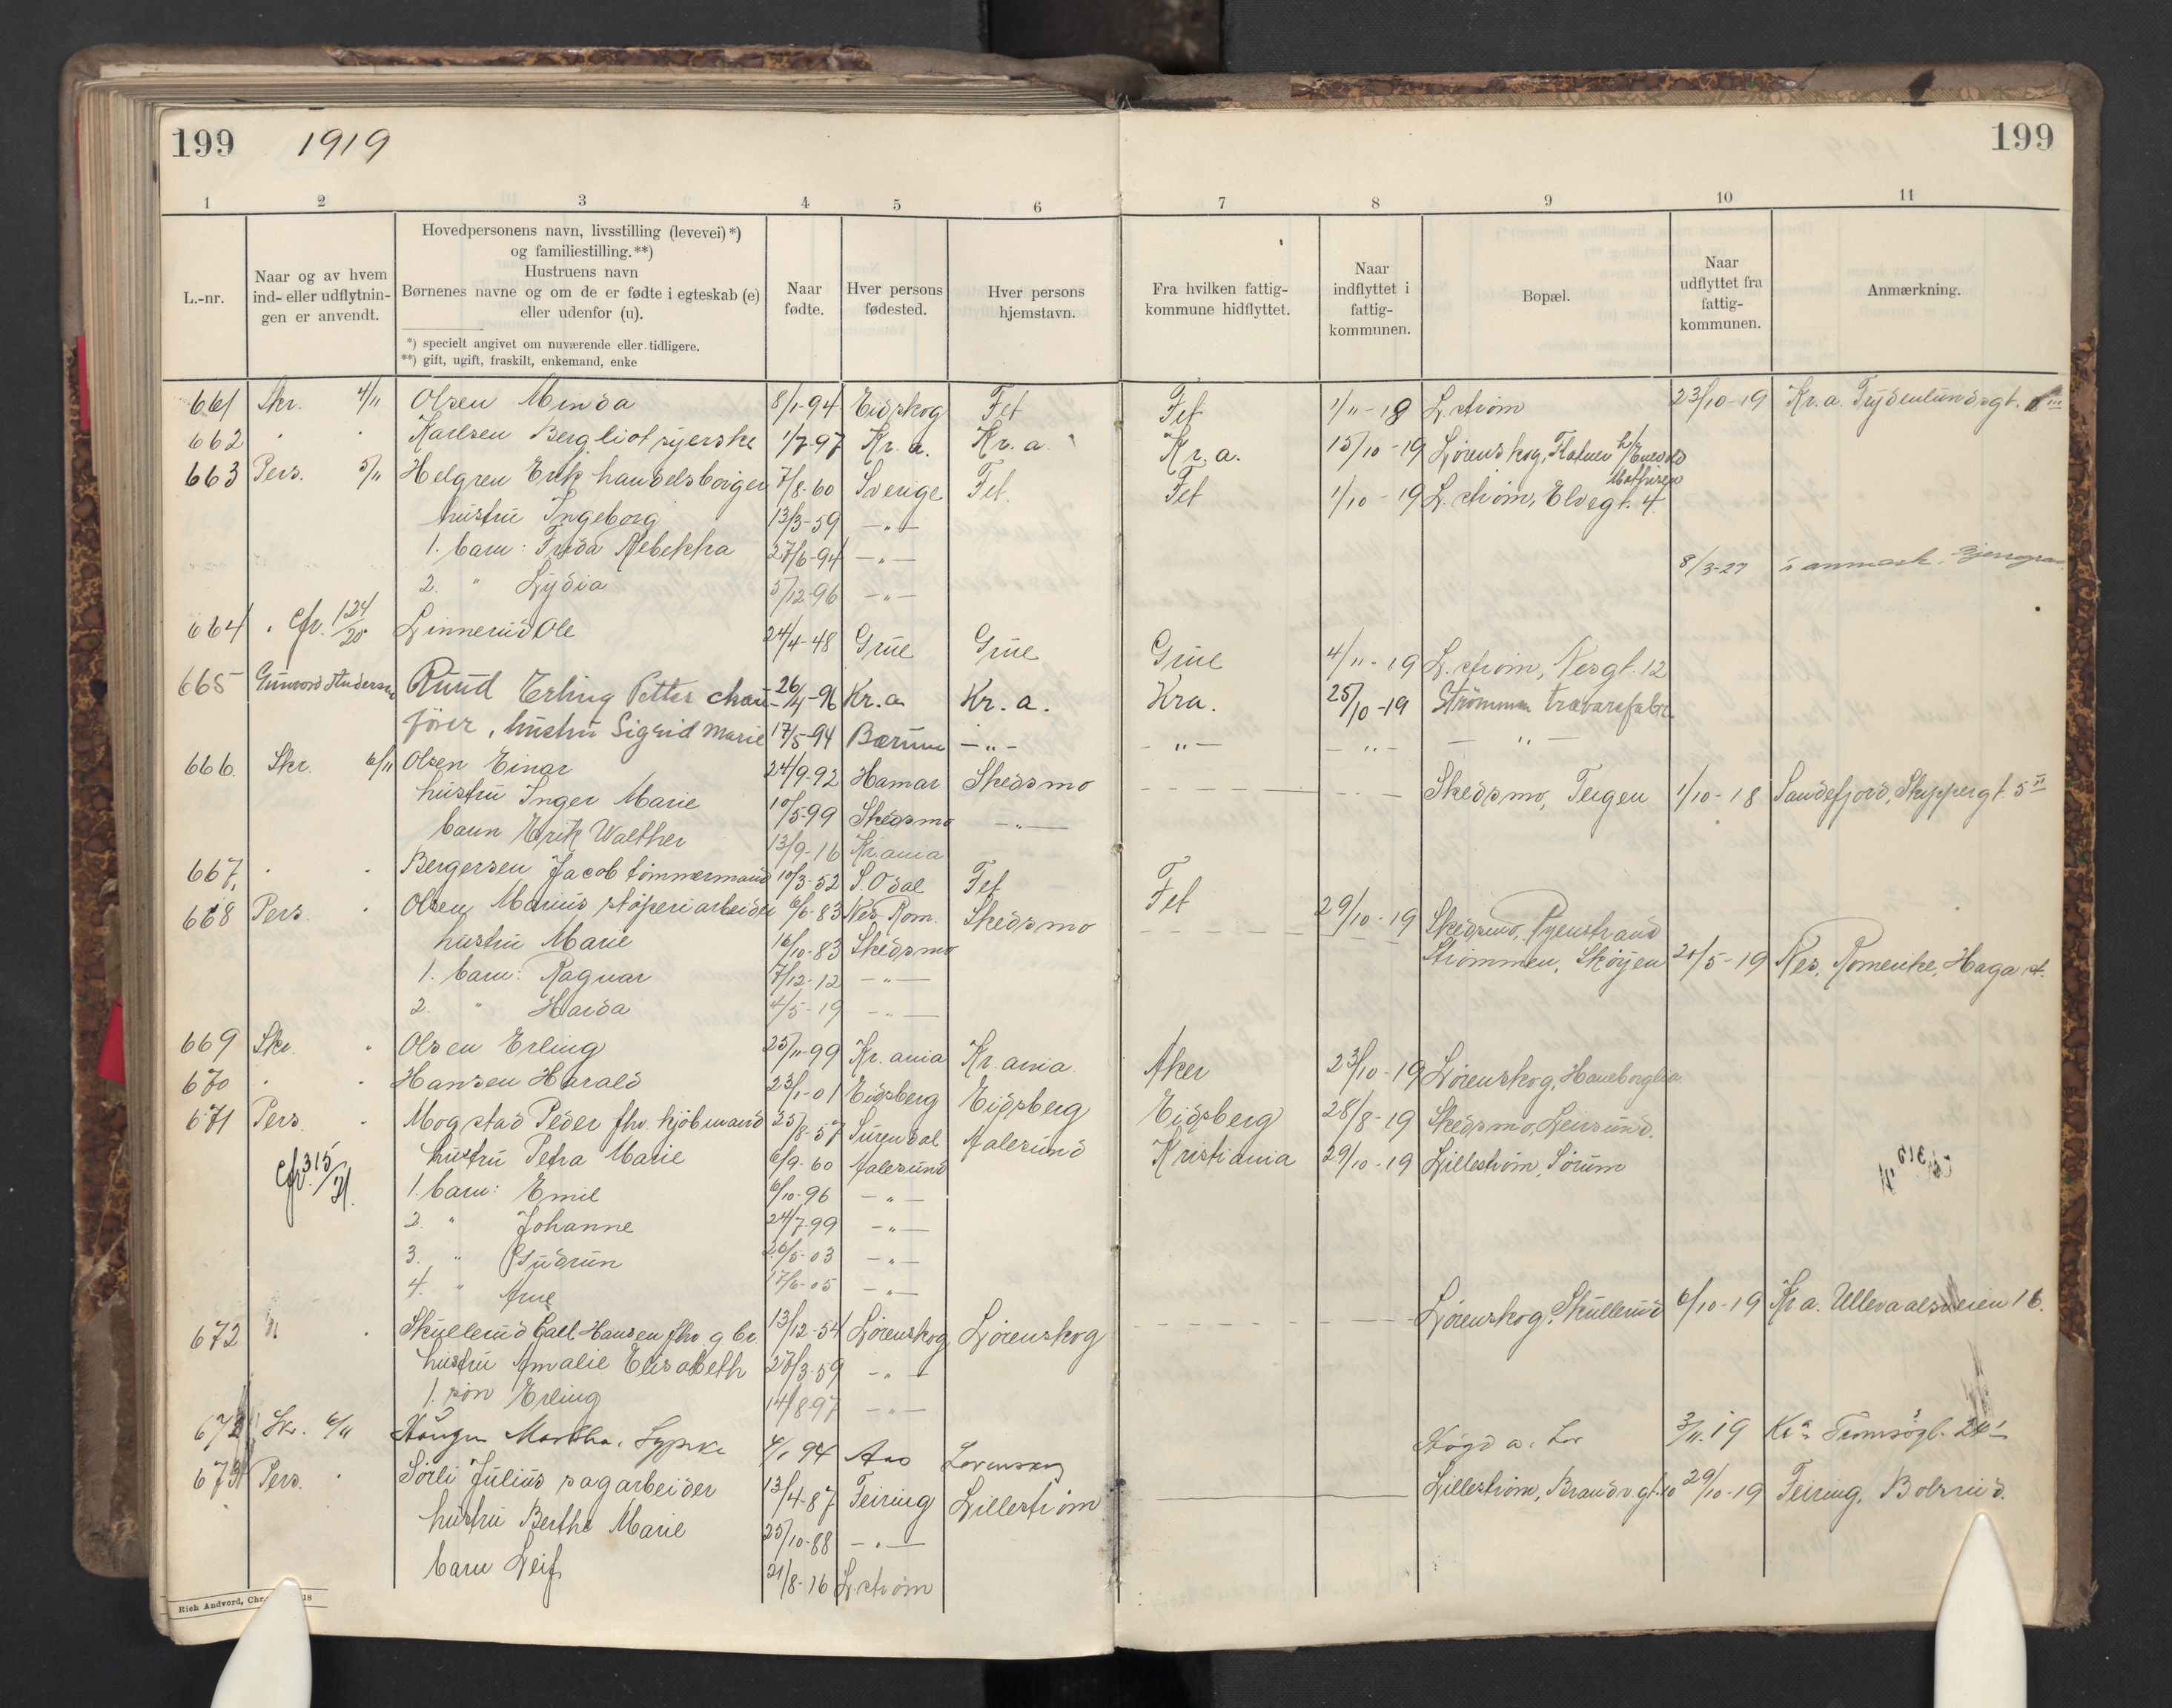 199 1919 199
1 2 3 4 5 6 7 8 9 10 11
L.-nr.
Naar og av hvem
ind- eller udflytnin-
gen er anvendt.
Hovedpersonens navn, livsstilling (levevei)*)
og familiestilling.**)
Hustruens navn
Børnenes navne og om de er fødte i egteskab (e)
eller udenfor (u).
*) specielt angivet om nuværende eller tidligere.
**) gift, ugift, fraskilt, enkemand, enke
Naar
fødte.
Hver persons
fødested.
Hver persons
hjemstavn.
Fra hvilken fattig-
kommune hidflyttet.
Naar
indflyttet i
fattig-
kommunen.
Bopæl.
Naar
udflyttet fra
fattig-
kommunen.
Anmærkning.
661 Skr. 4/11 Olsen Minda 8/1-94 Eidskog Fet Fet 1/11-18 L.strøm 23/10-19 Kr.a. Frydenlundsgt.
662 " " Karlsen Bergliot syerske 1/7-97 Kr.a. Kr.a. Kr.a. 15/10-19 Lørenskog, Flatner
663 Pers. 5/11 Helgren Erik handelsborger 7/8-60 Sverige Fet Fet 1/10-19 L.strøm, Elvegt. 4
hustru Ingeborg 13/3-59 —"—
1. barn: Frida Rebekka 27/6-94 —"— 8/3-27
2. " Lydia 5/12-96 —"—
664 " Cfr. 124/20 Linnerud Ole 24/4-48 Grue Grue Grue 4/11-19 L.strøm, Nesgt. 12
665 Gunvord Andersen Ruud Erling Petter chau- 26/4-96 Kr.a Kr.a. Kra. 25/10-19 Strømmen trævarefabr.
fører, hustru Sigrid Marie 17/5-94 Bærum —"— —"— —"— —"—
666. Skr. 6/11 Olsen Einar 24/9-92 Hamar Skedsmo Skedsmo, Teigen 1/10-18 Sandefjord, Skippergt. 5 II
hustru Inger Marie 10/5-99 Skedsmo —"—
barn Erik Walther 13/9-16 Kr.ania
667. " " Bergersen Jacob tømmermand 10/3-52 S. Odal Fet Fet 29/10-19 Skedsmo, Ryenstrand
668 Pers. " Olsen Marius støperiarbeider 6/6-83 Nes Rom. Skedsmo Strømmen, Skøyen 20/5-19 Nes, Romerike, Haga st.
hustru Marie 16/10-83 Skedsmo
1. barn: Ragnar 7/12-12 —"—
2. " Harda 4/5-19 —"—
669 Skr. " Olsen Erling 25/11-99 Kr.ania Kr.ania Aker 23/10-19 Lørenskog, Haneborglia
670 " " Hansen Harald 23/1-01 Eidsberg Eidsberg Eidsberg 28/8-19 Skedsmo, Leirsund.
671 Pers. " Mogstad Peder fhv. kjøbmand 25/8-57 Surendal Aalesund Kristiania 29/10-19 Lillestrøm, Sørum
Cfr. 315/21. hustru Petra Marie 6/9-60 Aalesund
1. barn: Emil 6/10-96 —"—
2. " Johanne 24/7-99 —"—
3. " Gudrun 20/5-03 —"—
4. " Arne 17/6-05 —"—
672 " " Skullerud Carl Hansen fhv g br 13/12-54 Lørenskog Lørenskog Lørenskog, Skullerud 6/10-19 Kr a. Ullevaalsveien 16.
hustru Amalie Elisabeth 27/3-59 —"—
1. søn Erling 14/8-97 —"—
672 Skr. 6/11 Martha 4/1 94 Aas Lørenskog 3/11-19 Kr.a Tromsøgt. 24 I
673 Pers. " Sørli Julius sagarbeider 13/4-87 Feiring Lillestrøm Lillestrøm, Brandvgt. 10 29/10-19 Feiring, Bolsrud.
hustru Berthe Marie 25/10-88 —"—
barn Leif 21/8-16 L.strøm
Rich Andvord, Chr. 18